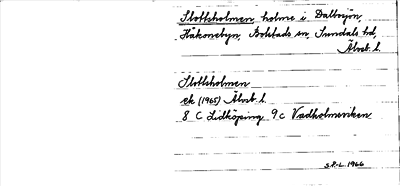 Slottsholmen, holme i Dalbosjön,
Håkanebyn, Bolstads sn, Sundals hd,
Älvsb. l.
Slottsholmen
ek (1965) Älvsb. l.
8 C Lidköping 9 c Vadholmsviken
S.P-L. 1966